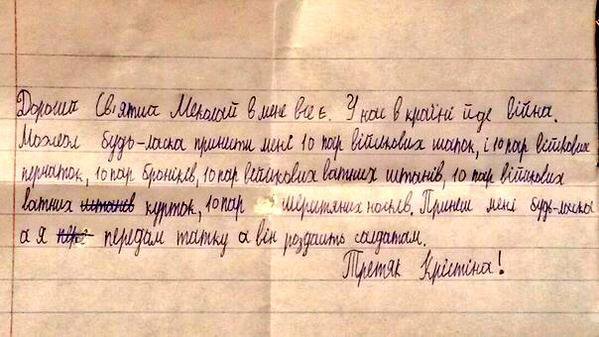 Дорогий Св'ятий Меколай в мене все є. У нас в країні йде війна.
Можеш будь-ласка принити мені 10 пар війскових шапок, і 10 пар війскових
перчаток, 10 пар броніків, 10 пар війскових ватних штанів, 10 пар війскових
ватних штанів курток, 10 пар шерштяних носків. Принеш мені будь-ласка
а я передам татку а він роздаить салдатам.
Третяк Крістіна!